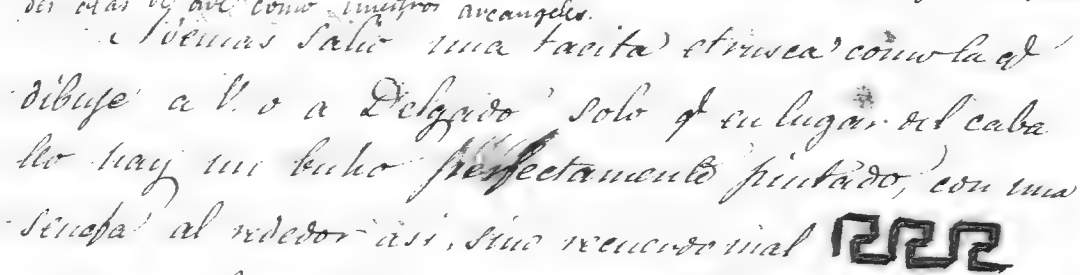 der alas de ave como nuestros arcangeles.
Ademas salio una tacita etrusca como la q.
dibuje a V. o a Delgado solo q en lugar del caba
llo hay un buho perfectamente pintado, con una
senefa al rededor asi, sino recuerdo mal